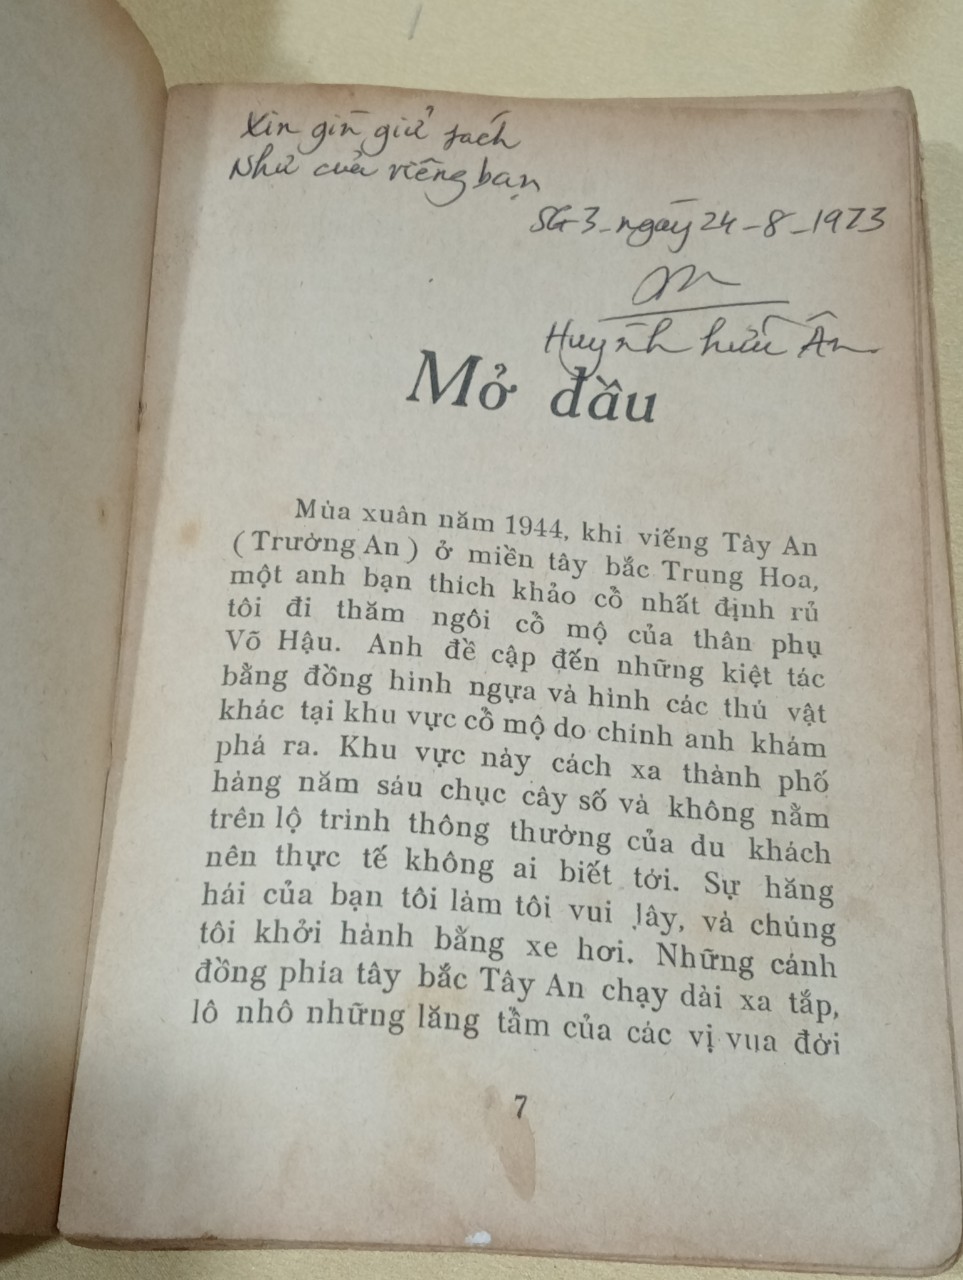 Xin gìn giử sách
Như của riêng bạn
SG3_ngày 24_8_1973
Huỳnh hữu Ân
Mở đầu
Mùa xuân năm 1944, khi viếng Tây An
(Trường An) ở miền tây bắc Trung Hoa,
một anh bạn thích khảo cổ nhất định rủ
tôi đi thăm ngôi cổ mộ của thân phụ
Võ Hậu. Anh đề cập đến những kiệt tác
bằng đồng hình ngựa và hình các thú vật
khác tại khu vực cổ mộ do chính anh khám
phá ra. Khu vực này cách xa thành phố
hàng năm sáu chục cây số và không nằm
trên lộ trình thông thường của du khách
nên thực tế không ai biết tới. Sự hăng
hái của bạn tôi làm tôi vui lây, và chúng
tôi khởi hành bằng xe hơi. Những cánh
đồng phía tây bắc Tây An chạy dài xa tắp,
lô nhô những lăng tẩm của các vị vua đời
7